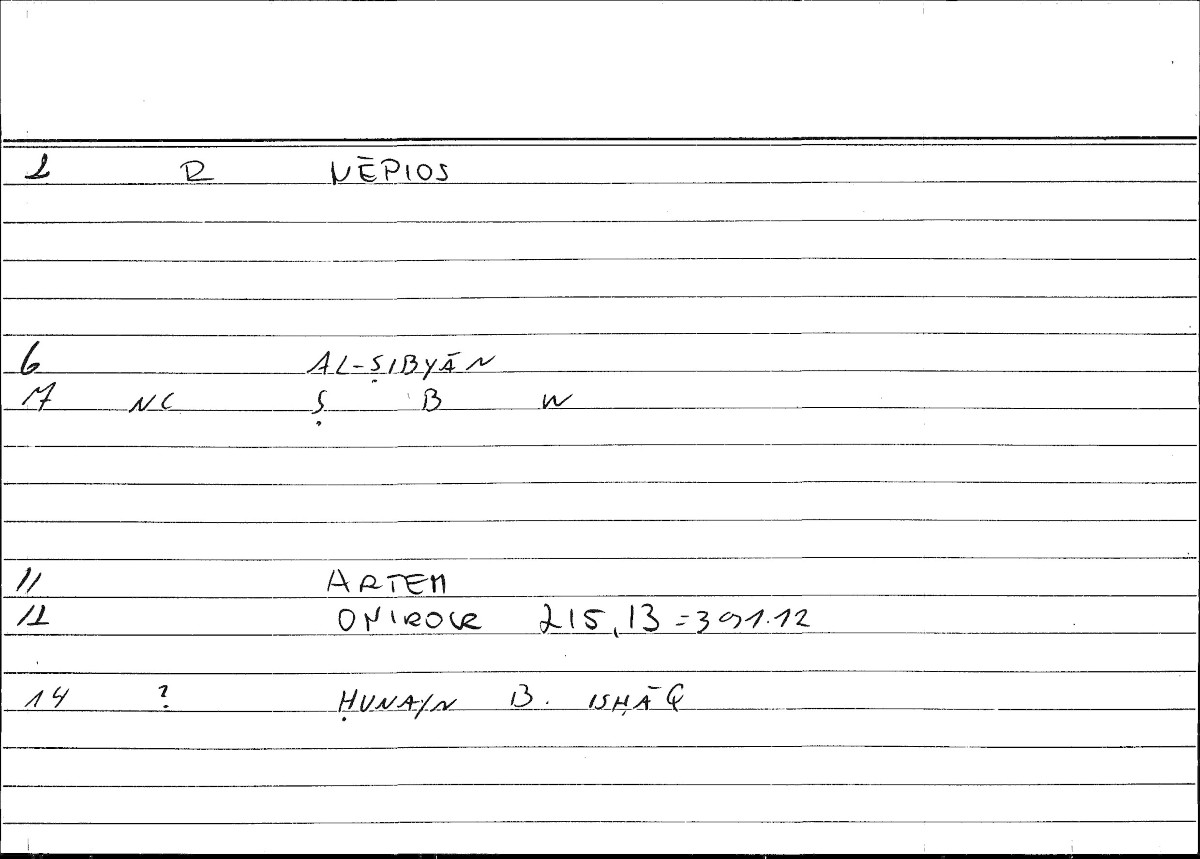 1 R NĒPIOS
6 AL-ṢIBYĀN
7 NC Ṣ B W
11 ARTEM
12 ONIROCR 215,13=391.12
14 ? ḤUNAYN B. ISḤĀQ